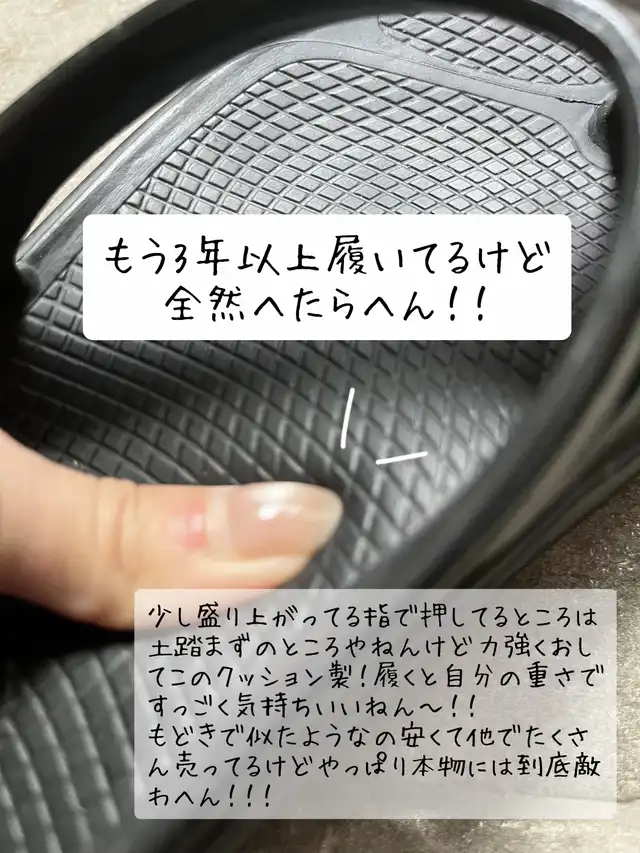 もう3年以上履いてるけど
全然へたらへん!!
少し盛り上がってる指で押してるところは
土踏まずのところやねんけど力強くおし
てこのクッション製!履くと自分の重さで
すっごく気持ちいいねん〜!!
もどきで似たようなの安くて他でたくさ
ん売ってるけどやっぱり本物には到底敵
わへん!!!